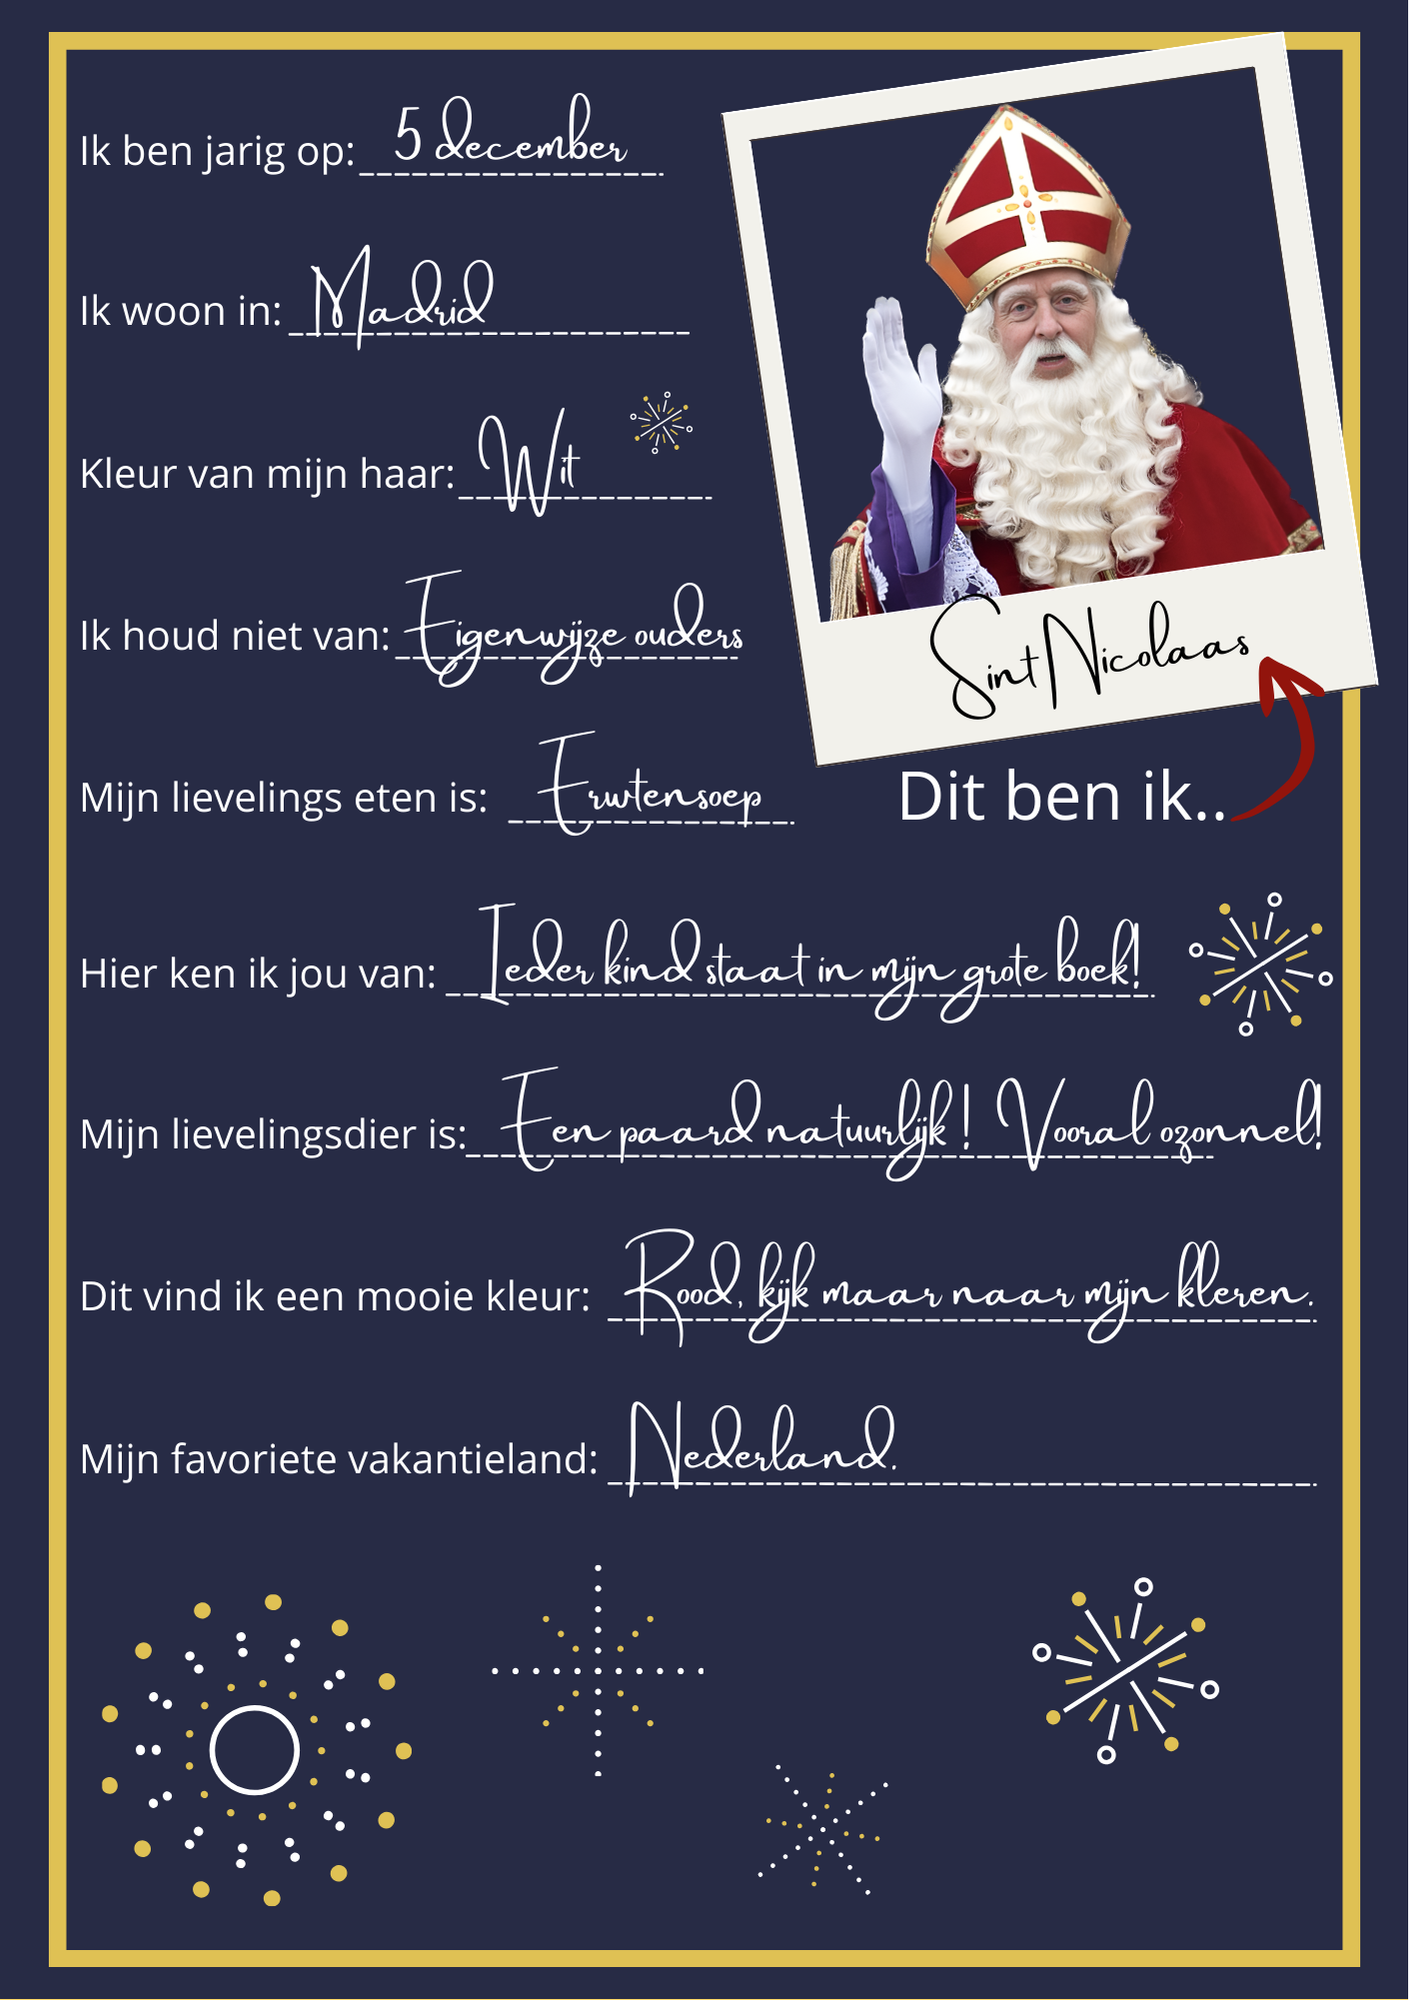 Ik ben jarig op: 5 december
Ik woon in: Madrid
Kleur van mijn haar: Wit
Ik houd niet van: Eigenwijze ouders
Sint Nicolaas
Mijn lievelings eten is: Erwtensoep
Dit ben ik..
Hier ken ik jou van: Ieder kind staat in mijn grote boek!
Mijn lievelingsdier is: Een paard natuurlijk! Vooral ozonnel!
Dit vind ik een mooie kleur: Rood, kijk maar naar mijn kleren.
Mijn favoriete vakantieland: Nederland.